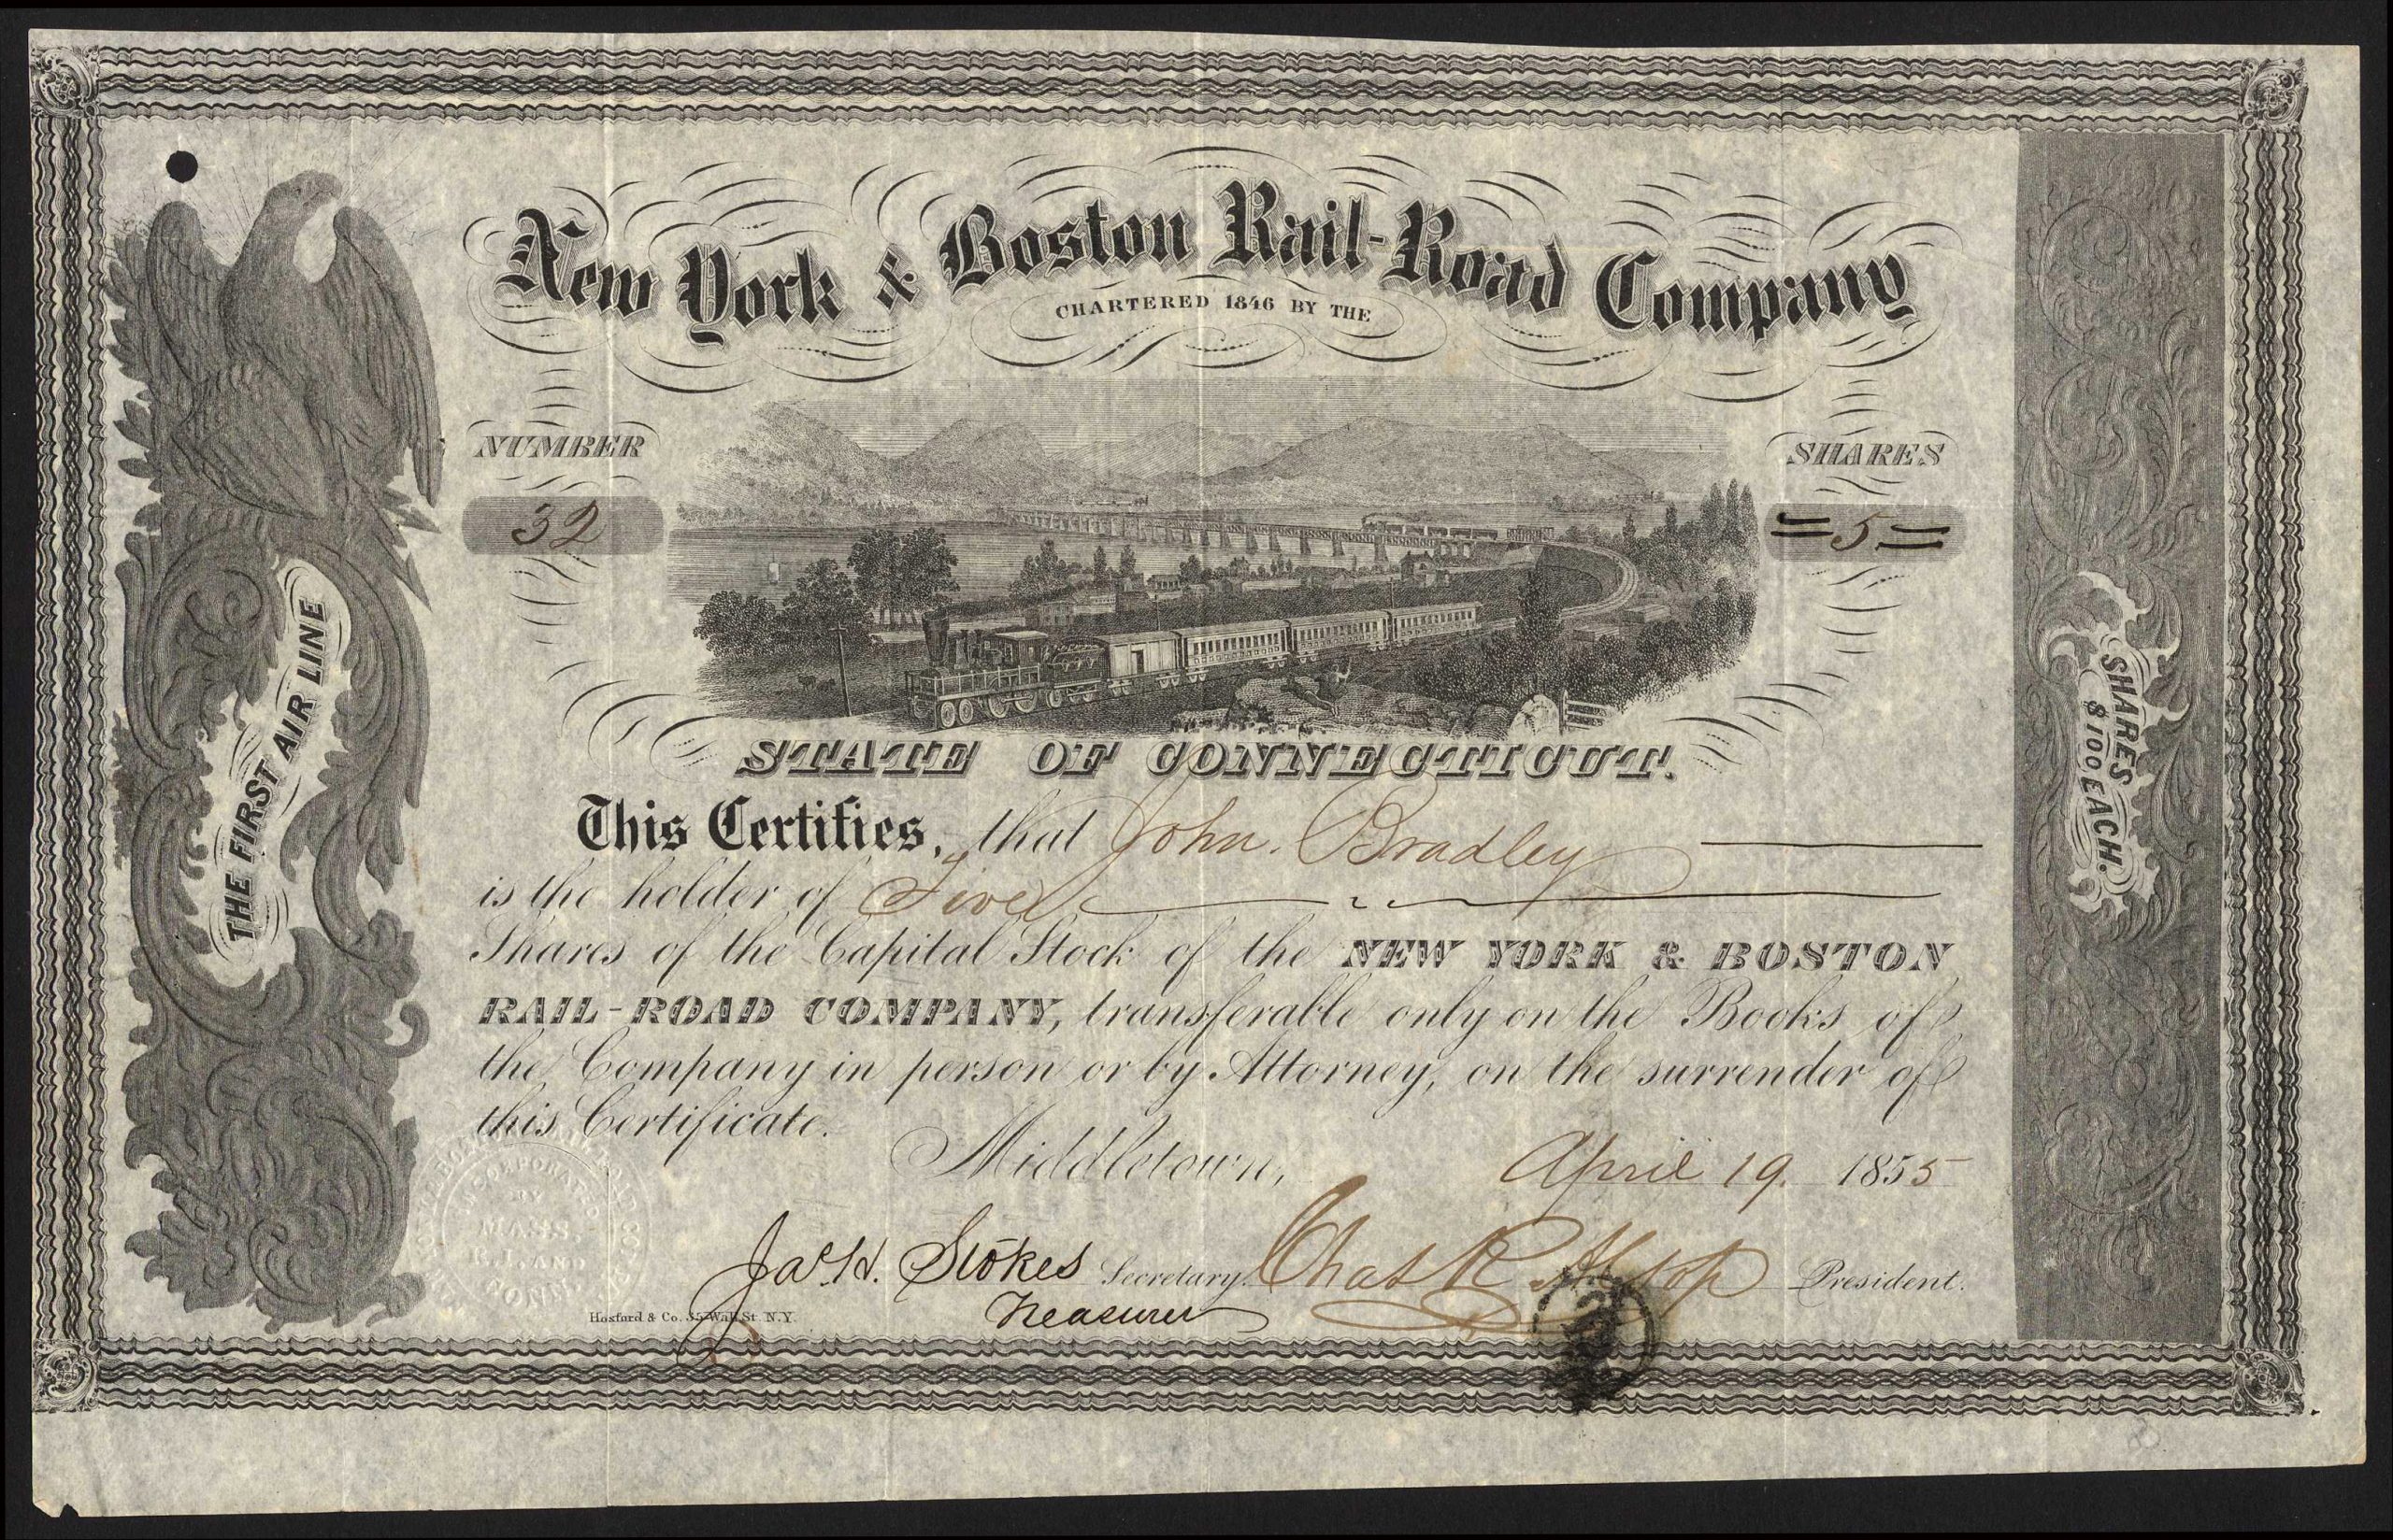 New York & Boston Rail-Road Company
CHARTERED 1846 BY THE
NUMBER
32
SHARES
=5=
THE FIRST AIR LINE
SHARES
$100 EACH.
STATE OF CONNECTICUT.
This Certifies, that John. Bradley
is the holder of Five
Shares of the Capital Stock of the NEW YORK & BOSTON
RAIL-ROAD COMPANY, transferable only on the Books of
the Company in person or by Attorney, on the surrender of
this Certificate.
Middletown, April 19. 1855
INCORPORATED
BY
MASS.
R.I. AND
CONN.
Jas. H. Stokes Secretary. Chas R Alsop President.
Treasurer
Hosford & Co. 35 Wall St. N.Y.